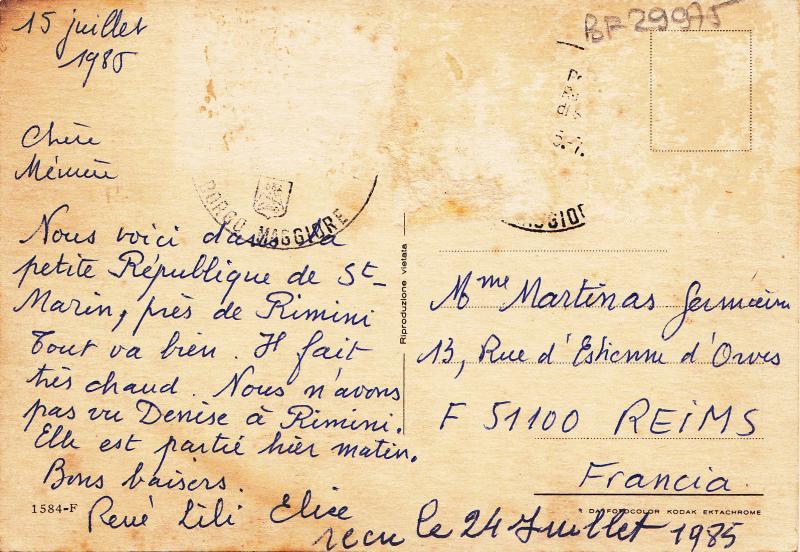 15 juillet
1985
Chère
Mémère
Nous voici dans la
petite République de St-
Marin, près de Rimini
Tout va bien. Il fait
très chaud. Nous n'avons
pas vu Denise à Rimini.
Elle est partie hier matin.
Bons baisers.
René Lili Elise
1584-F
BORGO MAGGIORE
Riproduzione vietata
BF 29975
MAGGIOR
Mme Martinas Germaine
13, Rue d'Estienne d'Orves
F 51100 REIMS
Francia
DA FOTOCOLOR KODAK EKTACHROME
recu le 24 Juillet 1985